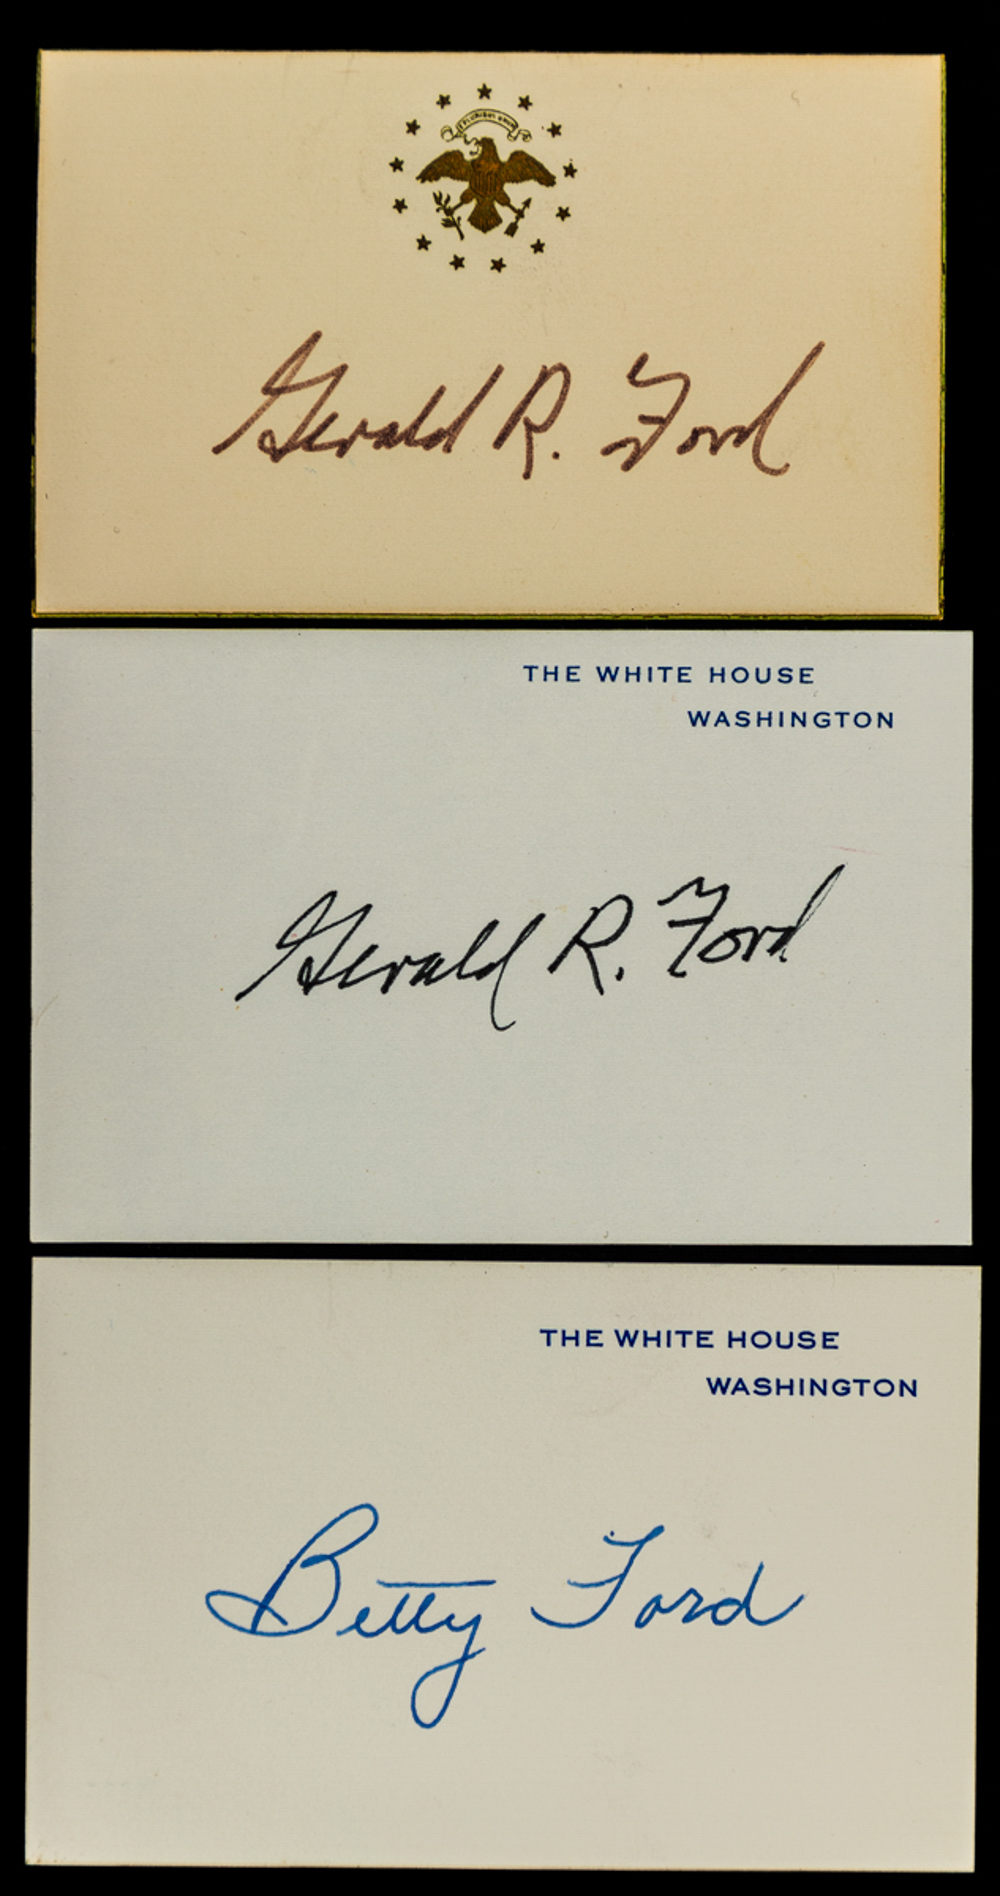 E PLURIBUS UNUM
Gerald R. Ford
THE WHITE HOUSE
WASHINGTON
Gerald R. Ford
THE WHITE HOUSE
WASHINGTON
Betty Ford